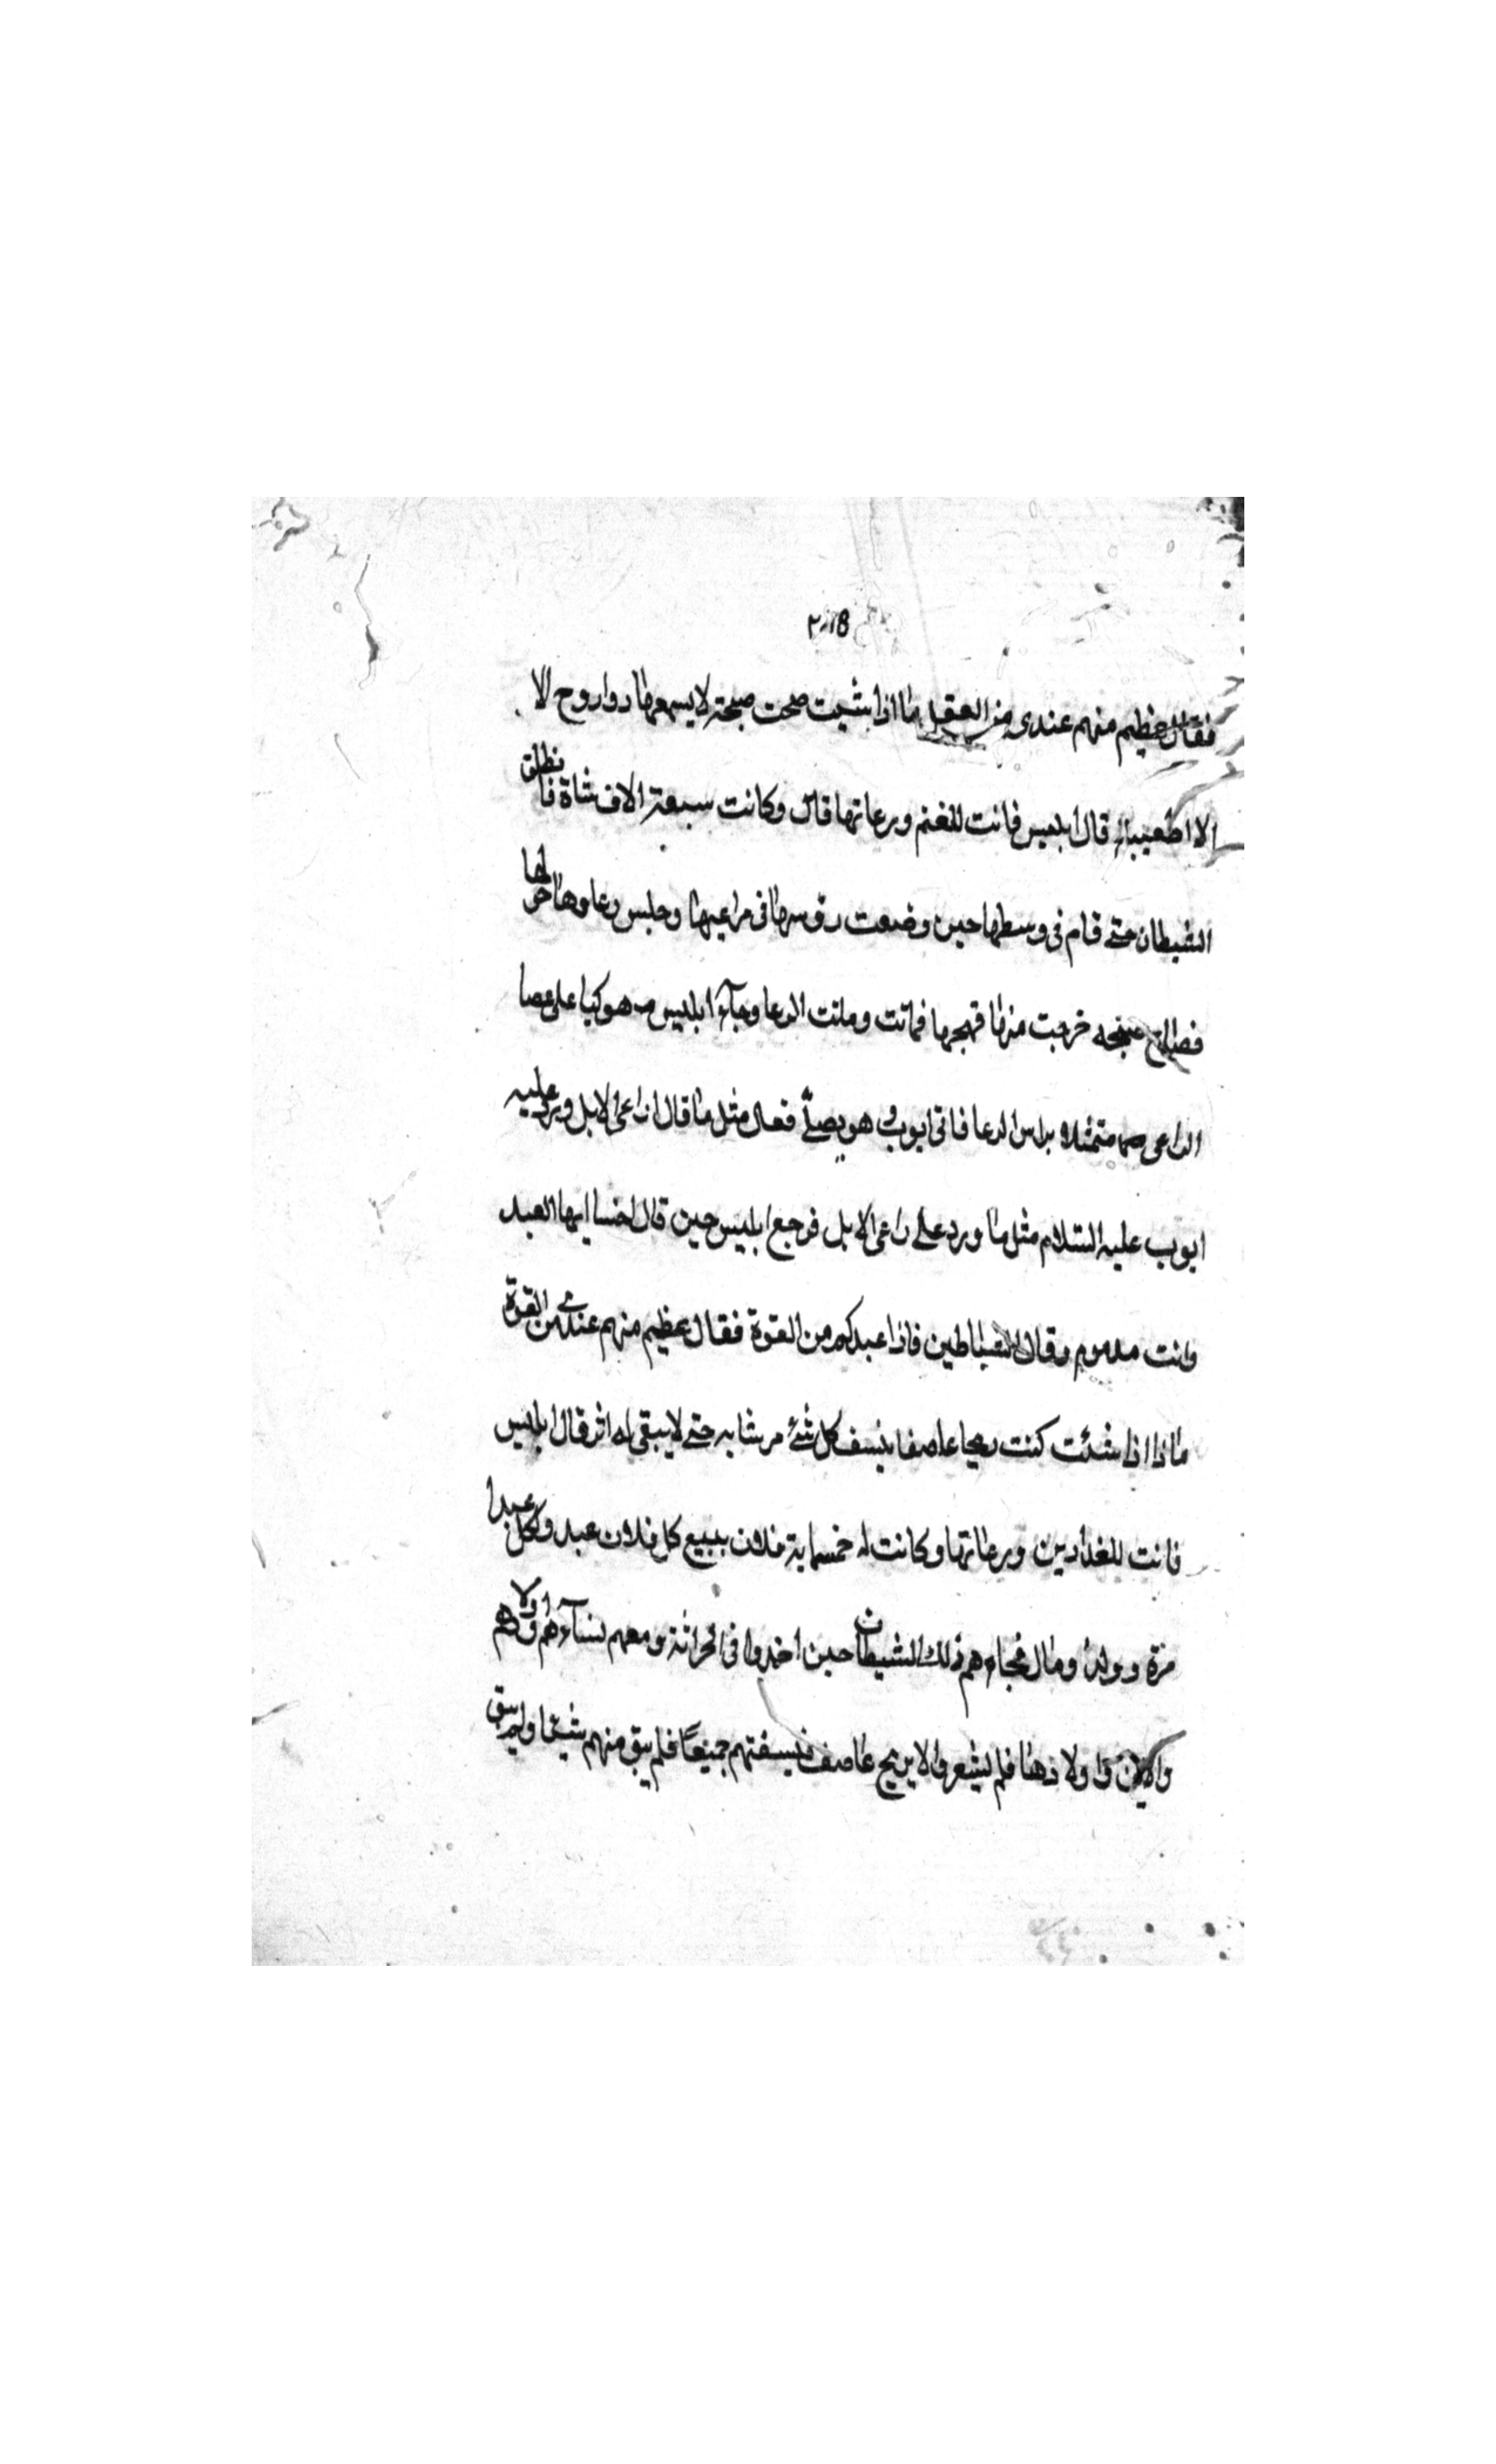 ٢٠١8
فقال عظيم منهم عندى من العقل ما اذا شيت صحت صيحة لا يسمعها ذو روح الا
الا اطعيبا قال ابليس فانت للغنم ورعاتها قال وكانت سبعة الاف شاة فانطلق
الشيطان حتى قام فى وسطها حين وضعت رؤسها فى مراعيها وجلس رعاوها حولها
خرجت منها فماتت وماتت الرعا وجاء ابليس على عصا
الراعى الرعا فاتى ايوب و هو يصلى فقال مثل ما قال راعى الابل ورد عليه
ايوب عليه السلام مثل ما ورد على راعى الابل فرجع ابليس حين قال اخسا ايها العبد
وانت مذموم وقال الشياطين فاذا عندكم من القوة فقال عظيم منهم عندى من القوة
ماذا اذا شئت كنت ريحا عاصفا ينسف كل شئ حتى لا يبقى له اثر قال ابليس
فانت للفدادين ورعاتها وكانت له خمسماية فدان يبيع كل فدان عبد ولكل عبد
مرة وولد ومال فجاءهم ذلك الشيطان حين اخذوا فى الحراثة ومعهم نساءهم اولادهم
فلم يشعروا الا بريح عاصف فنسفتهم جميعا فلم يبق منهم شيئا ولم يبق